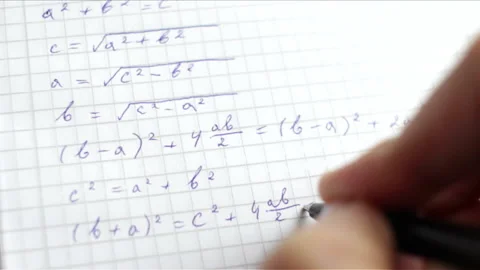 a² + b² = c
c = √a² + b²
a = √c² - b²
b = √c² - a²
(b-a)² + 4 ab/2 = (b-a)² + 2
c² = a² + b²
(b+a)² = c² + 4 ab/2